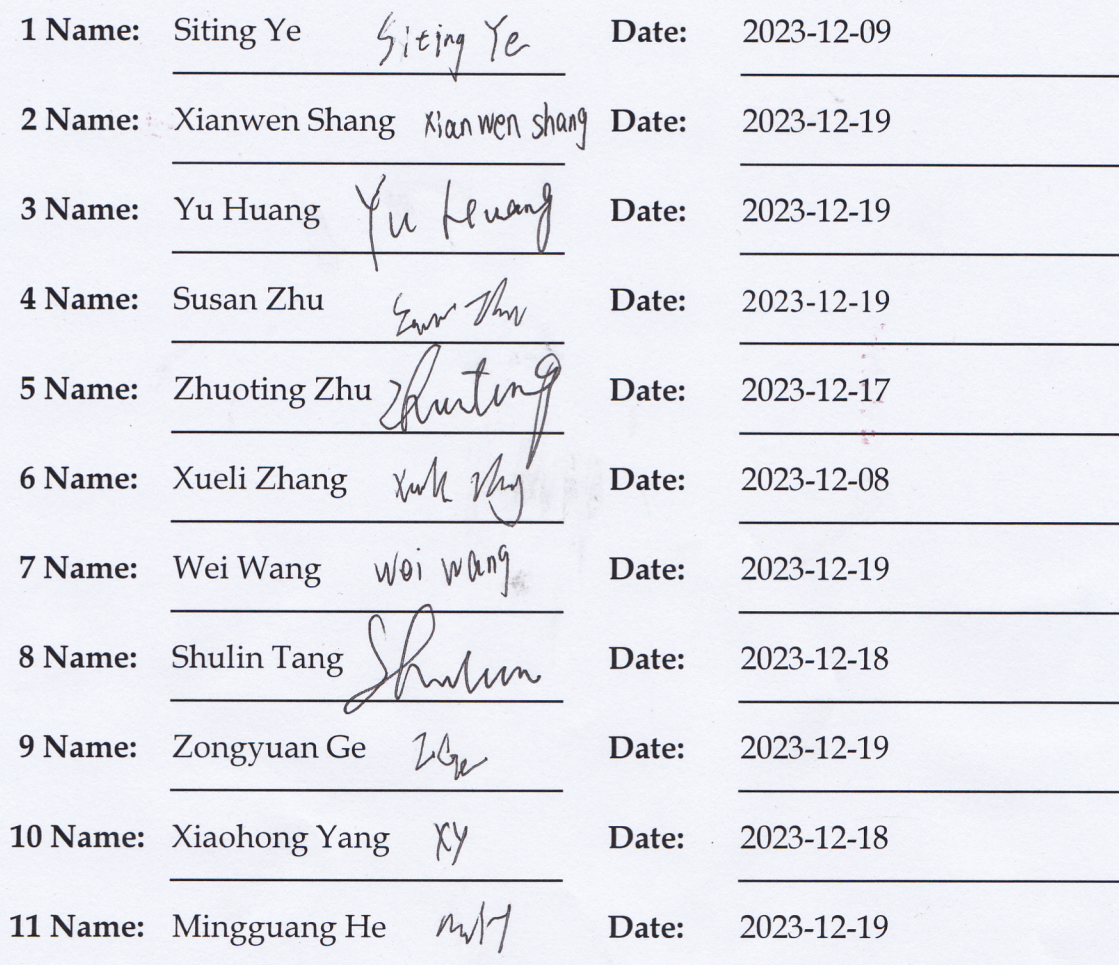 1 Name: Siting Ye Siting Ye Date: 2023-12-09
2 Name: Xianwen Shang Xianwen shang Date: 2023-12-19
3 Name: Yu Huang Yu Huang Date: 2023-12-19
4 Name: Susan Zhu Date: 2023-12-19
5 Name: Zhuoting Zhu Date: 2023-12-17
6 Name: Xueli Zhang Date: 2023-12-08
7 Name: Wei Wang Wei Wang Date: 2023-12-19
8 Name: Shulin Tang Shulin Date: 2023-12-18
9 Name: Zongyuan Ge ZGe Date: 2023-12-19
10 Name: Xiaohong Yang XY Date: 2023-12-18
11 Name: Mingguang He Date: 2023-12-19